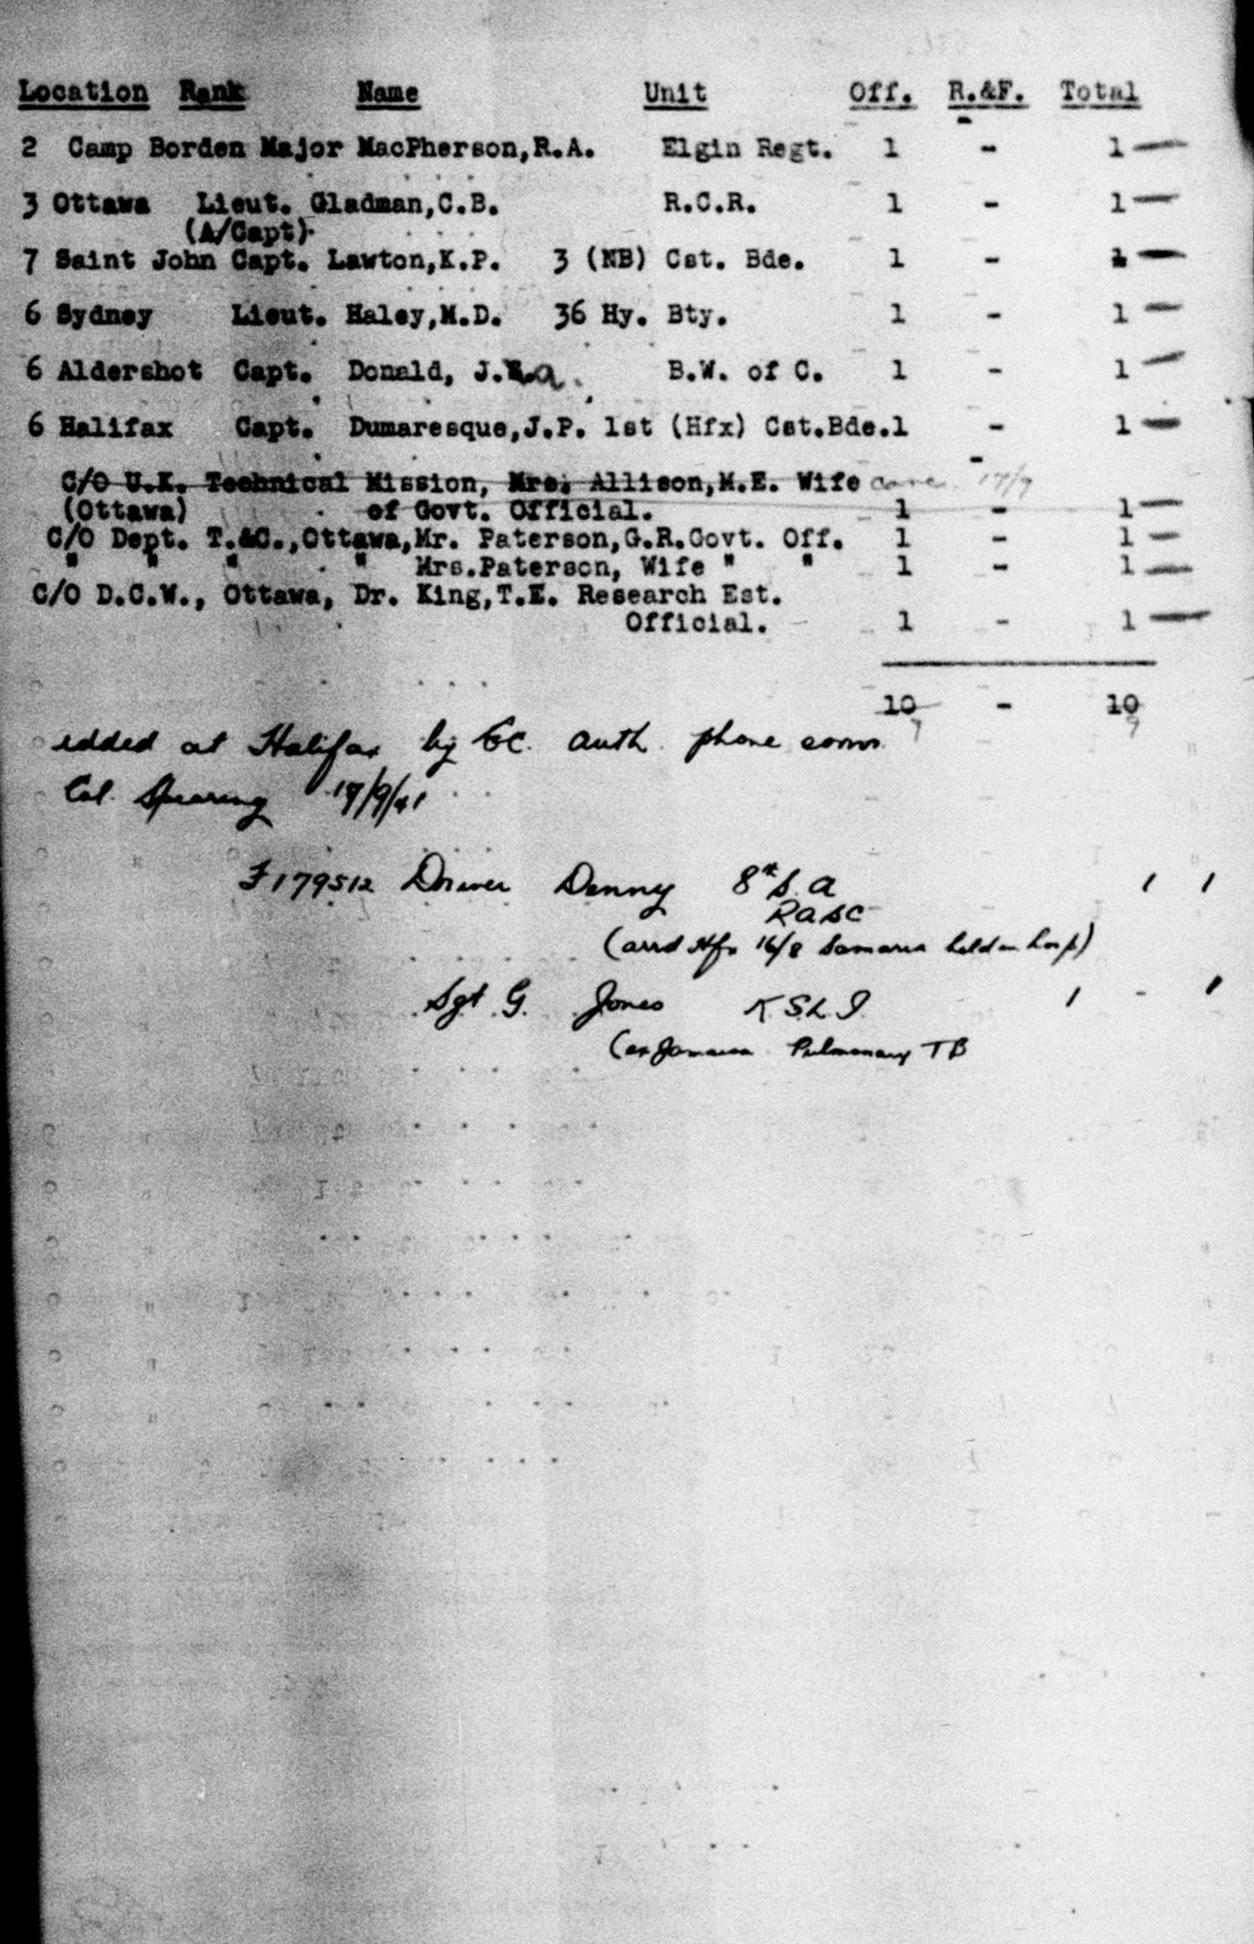 Location Rank Name Unit Off. R.&F. Total
2 Camp Borden Major MacPherson,R.A. Elgin Regt. 1 - 1
3 Ottawa Lieut. Gladman,C.B. R.C.R. 1 - 1
(A/Capt)
7 Saint John Capt. Lawton,K.P. 3 (NB) Cst. Bde. 1 - 1
6 Sydney Lieut. Haley,M.D. 36 Hy. Bty. 1 - 1
6 Aldershot Capt. Donald, J. a. B.W. of C. 1 - 1
6 Halifax Capt. Dumaresque,J.P. 1st (Hfx) Cst.Bde.1 - 1
C/O U.K. Technical Mission, Mrs. Allison,M.E. Wife canc 17/9
(Ottawa) of Govt. Official. 1 - 1
C/O Dept. T.&C.,Ottawa,Mr. Paterson,G.R.Govt. Off. 1 - 1
" " " " Mrs.Paterson, Wife " " 1 - 1
C/O D.C.W., Ottawa, Dr. King,T.E. Research Est.
Official. 1 - 1
10 - 10
9 9
added at Halifax by EC. auth phone conv
Col. Spearing 17/9/41
F179512 Driver Denny 8th S.A 1 1
RASC
(arrd Hfx 16/8 Samaria held in hosp)
Sgt G. Jones KSLI 1 - 1
(ex Jamaica Pulmonary TB